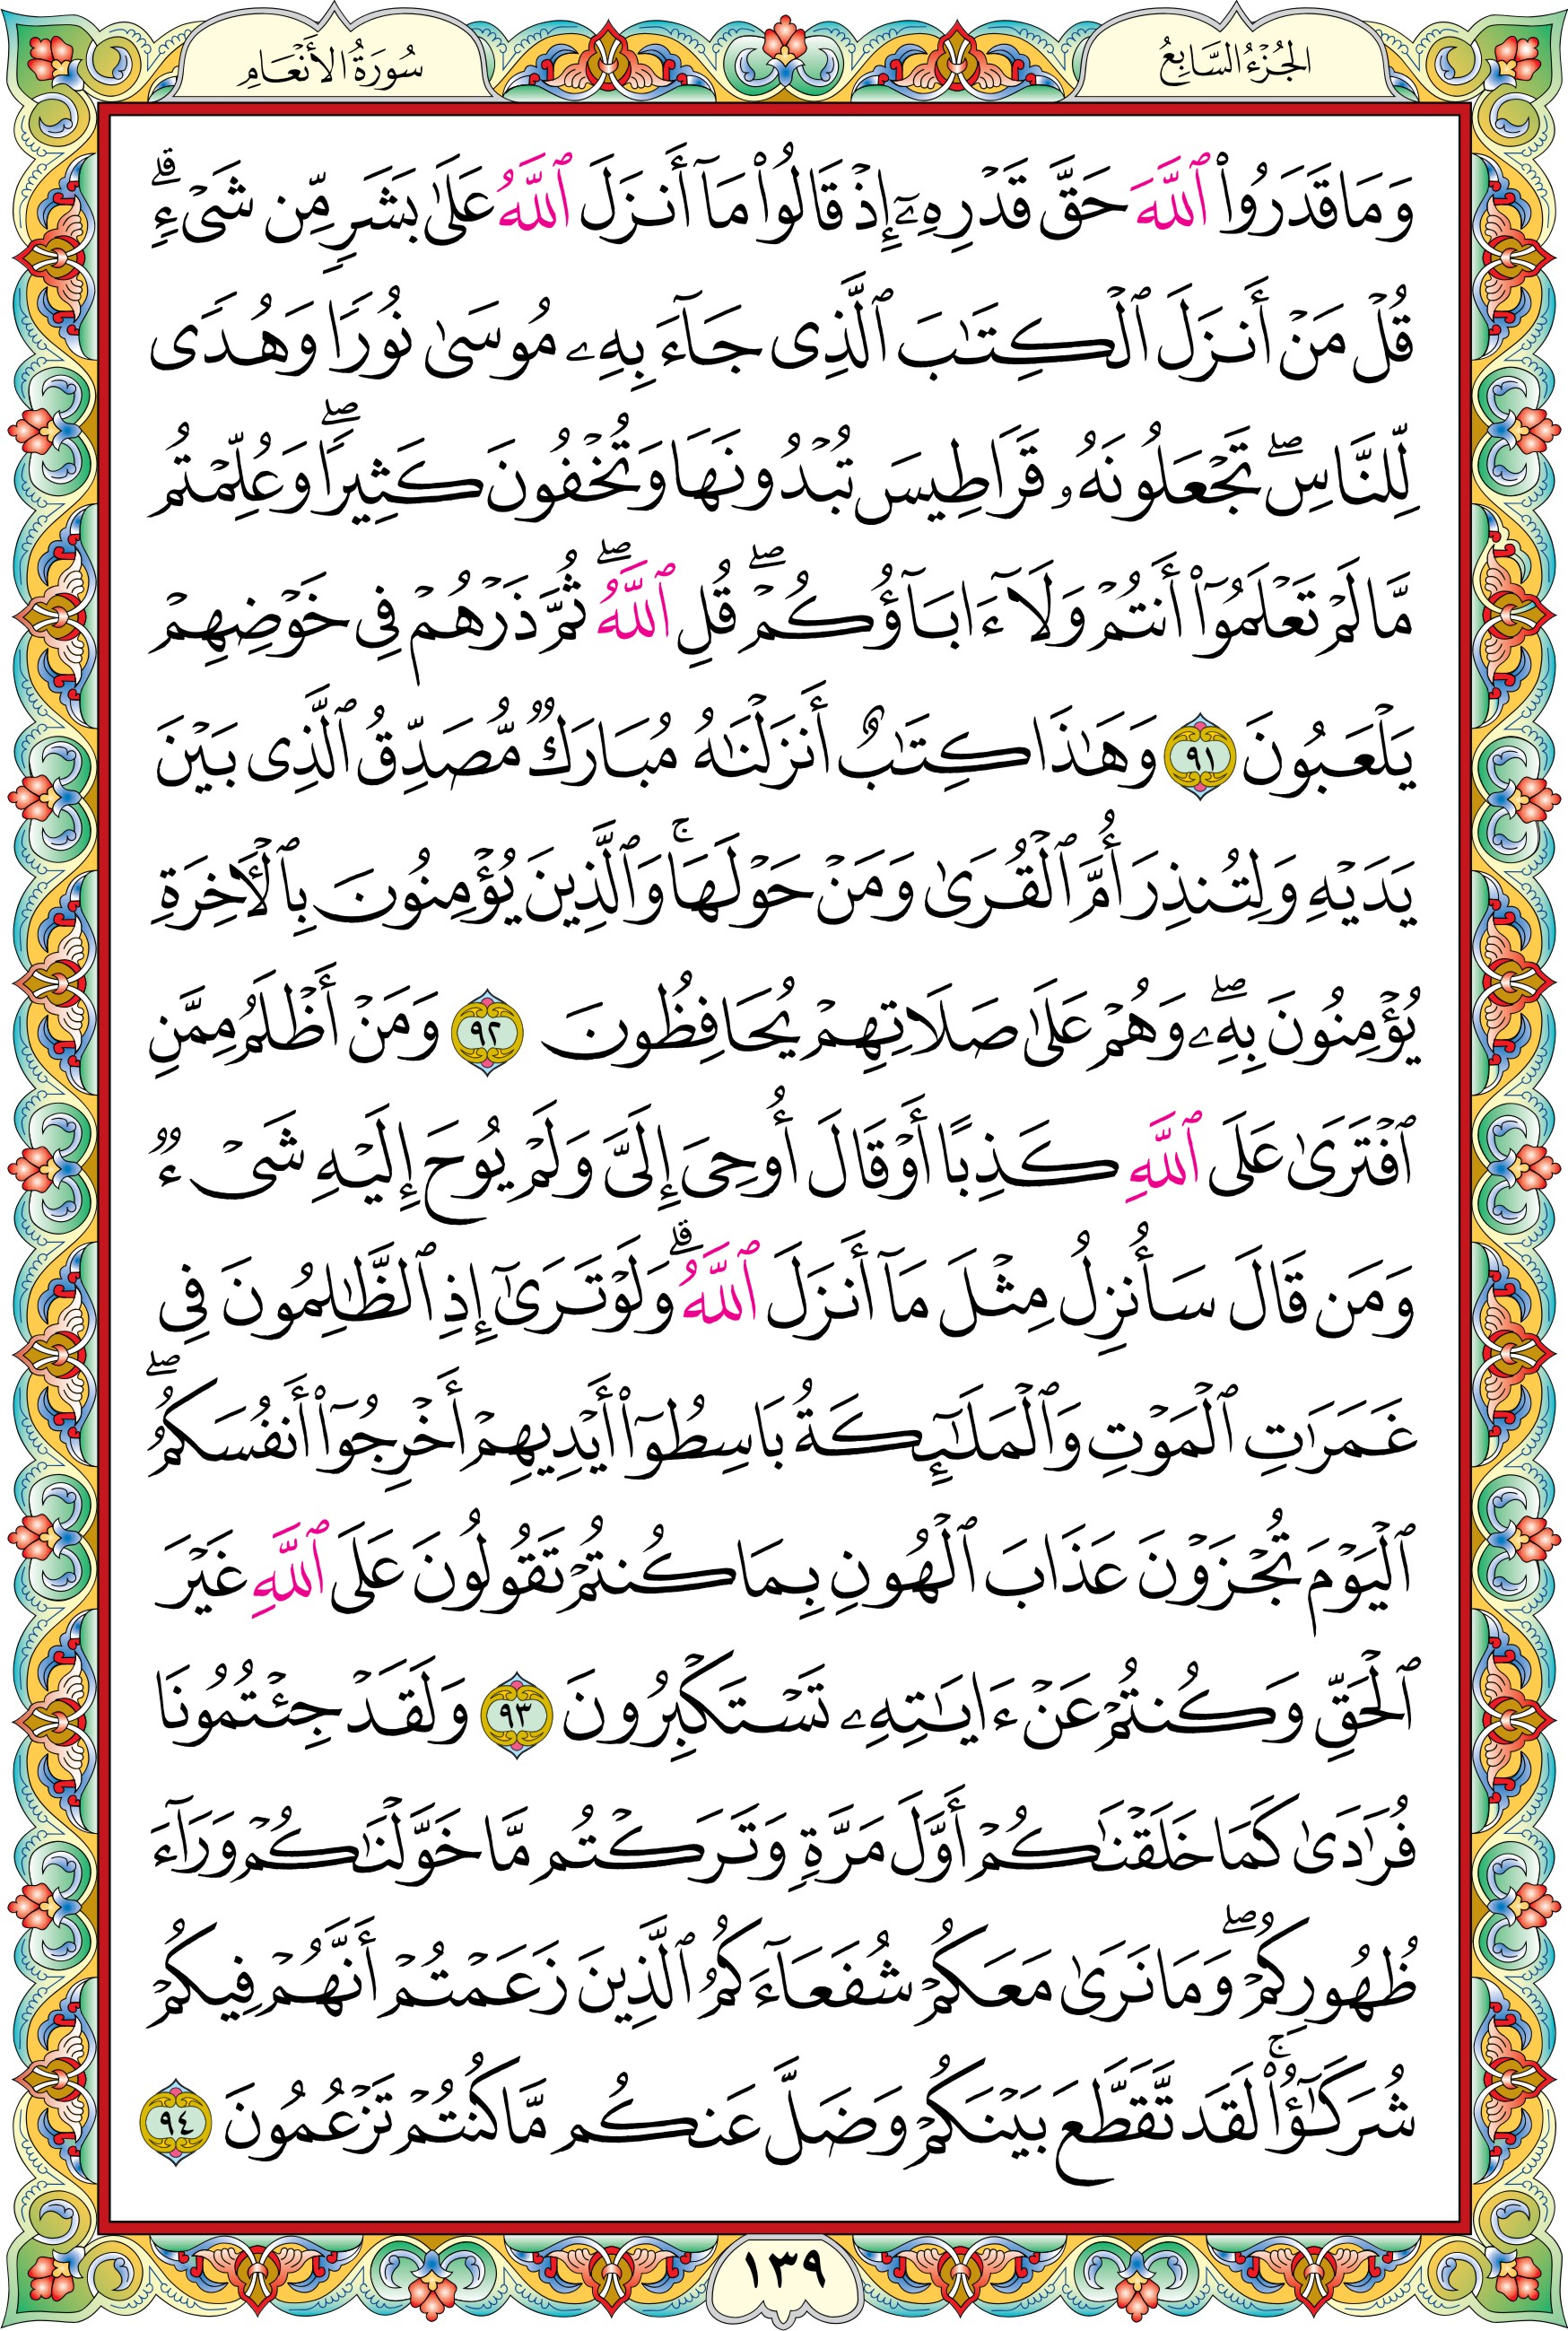 الجُزْءُ السَّابِعُ
سُورَةُ الأَنْعَامِ
وَمَا قَدَرُوا۟ ٱللَّهَ حَقَّ قَدْرِهِۦٓ إِذْ قَالُوا۟ مَآ أَنزَلَ ٱللَّهُ عَلَىٰ بَشَرٍ مِّن شَىْءٍ ۗ
قُلْ مَنْ أَنزَلَ ٱلْكِتَـٰبَ ٱلَّذِى جَآءَ بِهِۦ مُوسَىٰ نُورًا وَهُدًى
لِّلنَّاسِ ۖ تَجْعَلُونَهُۥ قَرَاطِيسَ تُبْدُونَهَا وَتُخْفُونَ كَثِيرًا ۖ وَعُلِّمْتُم
مَّا لَمْ تَعْلَمُوٓا۟ أَنتُمْ وَلَآ ءَابَآؤُكُمْ ۖ قُلِ ٱللَّهُ ۖ ثُمَّ ذَرْهُمْ فِى خَوْضِهِمْ
يَلْعَبُونَ ٩١ وَهَـٰذَا كِتَـٰبٌ أَنزَلْنَـٰهُ مُبَارَكٌ مُّصَدِّقُ ٱلَّذِى بَيْنَ
يَدَيْهِ وَلِتُنذِرَ أُمَّ ٱلْقُرَىٰ وَمَنْ حَوْلَهَا ۚ وَٱلَّذِينَ يُؤْمِنُونَ بِٱلْـَٔاخِرَةِ
يُؤْمِنُونَ بِهِۦ ۖ وَهُمْ عَلَىٰ صَلَاتِهِمْ يُحَافِظُونَ ٩٢ وَمَنْ أَظْلَمُ مِمَّنِ
ٱفْتَرَىٰ عَلَى ٱللَّهِ كَذِبًا أَوْ قَالَ أُوحِىَ إِلَىَّ وَلَمْ يُوحَ إِلَيْهِ شَىْءٌ
وَمَن قَالَ سَأُنزِلُ مِثْلَ مَآ أَنزَلَ ٱللَّهُ ۗ وَلَوْ تَرَىٰٓ إِذِ ٱلظَّـٰلِمُونَ فِى
غَمَرَٰتِ ٱلْمَوْتِ وَٱلْمَلَـٰٓئِكَةُ بَاسِطُوٓا۟ أَيْدِيهِمْ أَخْرِجُوٓا۟ أَنفُسَكُمُ ۖ
ٱلْيَوْمَ تُجْزَوْنَ عَذَابَ ٱلْهُونِ بِمَا كُنتُمْ تَقُولُونَ عَلَى ٱللَّهِ غَيْرَ
ٱلْحَقِّ وَكُنتُمْ عَنْ ءَايَـٰتِهِۦ تَسْتَكْبِرُونَ ٩٣ وَلَقَدْ جِئْتُمُونَا
فُرَٰدَىٰ كَمَا خَلَقْنَـٰكُمْ أَوَّلَ مَرَّةٍ وَتَرَكْتُم مَّا خَوَّلْنَـٰكُمْ وَرَآءَ
ظُهُورِكُمْ ۖ وَمَا نَرَىٰ مَعَكُمْ شُفَعَآءَكُمُ ٱلَّذِينَ زَعَمْتُمْ أَنَّهُمْ فِيكُمْ
شُرَكَـٰٓؤُا۟ ۚ لَقَد تَّقَطَّعَ بَيْنَكُمْ وَضَلَّ عَنكُم مَّا كُنتُمْ تَزْعُمُونَ ٩٤
١٣٩